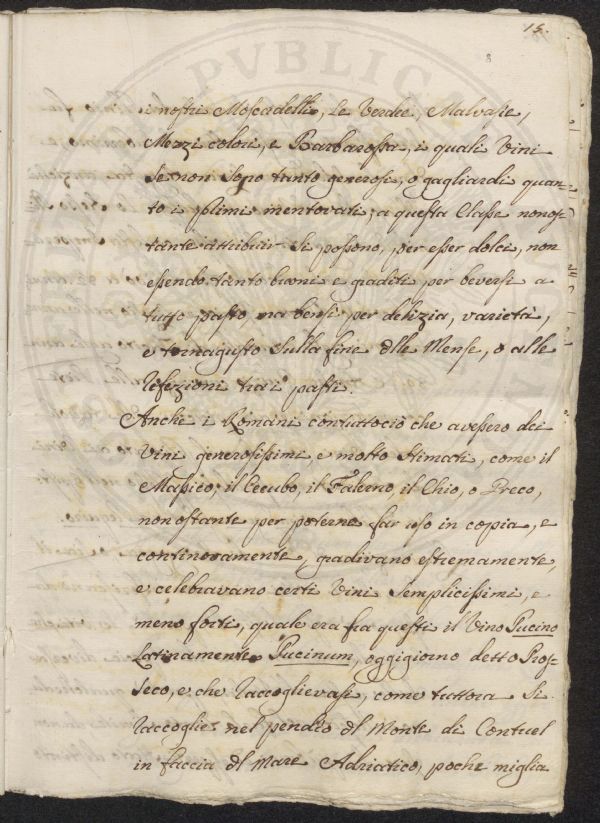 15.
8
i nostri Moscadelli, le Verdee, Malvasie,
Mezzi colori, e Barbarossa, i quali Vini
se non sono tanto generosi, o gagliardi quan-
to i primi mentovati, a questa Classe nonos-
tante attribuir si possono, per esser dolci, non
essendo tanto buoni e graditi per beversi a
tutto pasto, ma bensì per delizia, varietà,
e tornagusto sulla fine dlle Mense, o alle
refezioni tra i pasti.
Anche i Romani contuttociò che avessero dei
Vini generosissimi, e molto stimati, come il
Massico, il Cecubo, il Falerno, il Chio, o Greco,
non ostante per poterne far uso in copia, e
continovamente, gradivano estremamente,
e celebravano certi Vini semplicissimi, e
meno forti, quale era fra questi il Vino Pucino
Latinamente Pucinum, oggigiorno detto Pros-
seco, e che raccoglievasi, come tuttora si
raccoglie nel pendio dl Monte di Contuel
in faccia dl Mare Adriatico, poche miglia